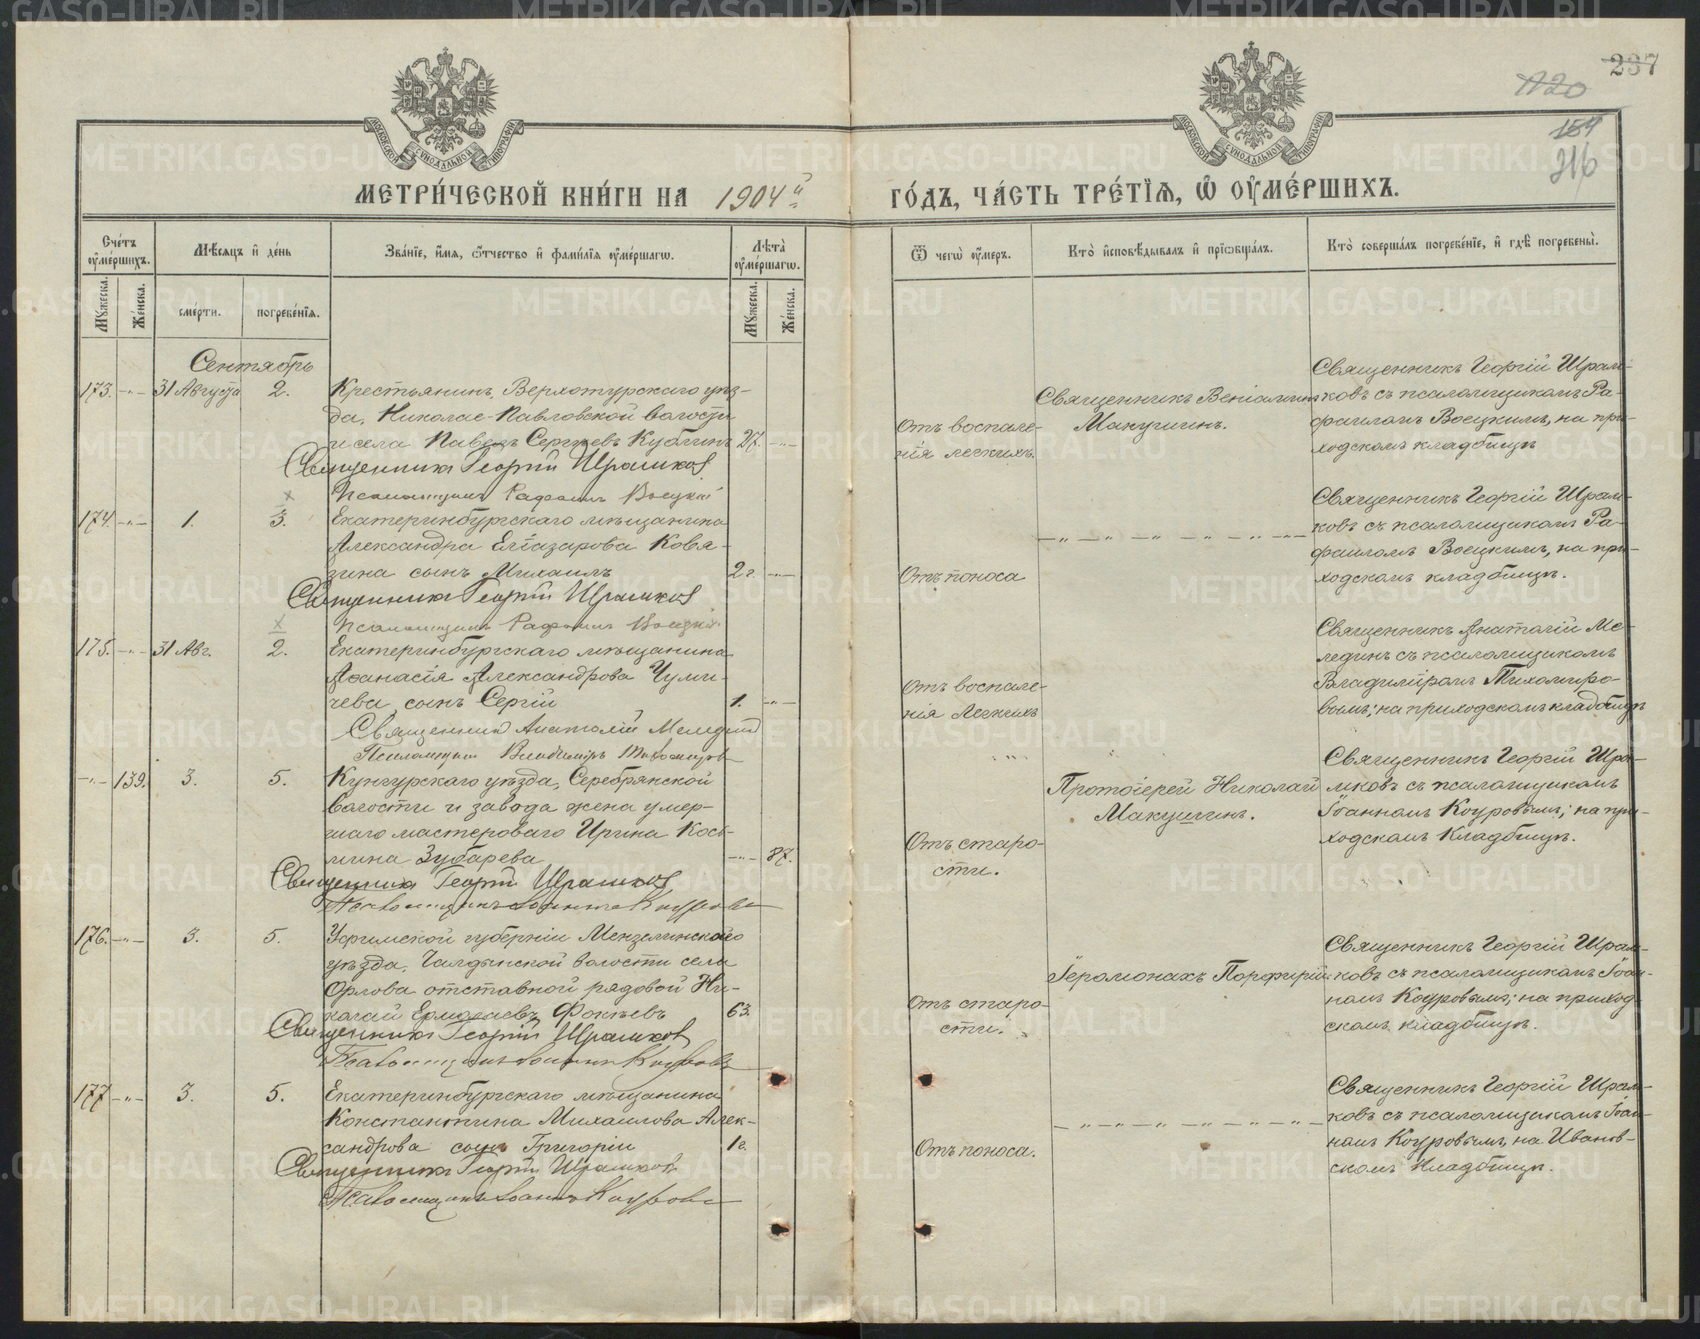 237
1120
184
216
МОСКОВСКОЙ СѴНОДАЛЬНОЙ ТИПОГРАФІИ
МОСКОВСКОЙ СѴНОДАЛЬНОЙ ТИПОГРАФІИ
МЕТРИ́ЧЕСКОЙ КНИ́ГИ НА 1904й ГО́ДЪ, ЧА́СТЬ ТРЕ́ТІѦ, Ѿ ОУ҆МЕ́РШИХЪ.
Сче́тъ оумéршихъ.
Мѣ́сяцъ и де́нь
Зва́нїе, и́мя, ѻ҆́тчество и фами́лїя оумéршагѡ.
Лѣта̀ оумéршагѡ.
Ѿ чегѡ̀ оу́меръ.
Кто̀ исповѣ́дывалъ и прїѡбща́лъ.
Кто̀ соверша́лъ погребе́нїе, и гдѣ̀ погребены̀.
Мꙋ́жеска.
Же́нска.
сме́рти.
погребе́нїя.
Мꙋ́жеска.
Же́нска.
Сентябрь
173. -"- 31 Августа 2.
Крестьянинъ, Верхотурскаго уѣз-
да, Николае-Павловской волости
и села Павелъ Сергѣевъ Кублинъ 27. -"-
Священникъ Георгій Шрамковъ
Псаломщикъ Рафаилъ Воецкій
Отъ воспале-
нія легкихъ.
Священникъ Веніаминъ
Макушинъ.
Священникъ Георгій Шрам-
ковъ съ псаломщикомъ Ра-
фаиломъ Воецкимъ, на при-
ходскомъ кладбищѣ
174. -"- 1. 3.
Екатеринбургскаго мѣщанина
Александра Еліазарова Ковя-
зина сынъ Михаилъ 2 г. -"-
Священникъ Георгій Шрамковъ
Псаломщикъ Рафаилъ Воецкій
Отъ поноса
-"-"-"-"-"-
Священникъ Георгій Шрам-
ковъ съ псаломщикомъ Ра-
фаиломъ Воецкимъ, на при-
ходскомъ кладбищѣ.
175. -"- 31 Авг. 2.
Екатеринбургскаго мѣщанина
Аѳанасія Александрова Чуми-
чева сынъ Сергій 1. -"-
Священникъ Анатолій Меледин
Псаломщикъ Владиміръ Тихомировъ
Отъ воспале-
нія Легкихъ
Священникъ Анатолій Ме-
лединъ съ псаломщикомъ
Владиміромъ Тихомиро-
вымъ; на приходскомъ кладбищѣ
-"- 139. 3. 5.
Кунгурскаго уѣзда, Серебрянской
волости и завода жена умер-
шаго мастероваго Ирина Кось-
мина Зубарева -"- 87.
Священникъ Георгій Шрамковъ
Псаломщикъ Іоаннъ Коуровъ
Отъ старо-
сти.
Протоіерей Николай
Макушинъ.
Священникъ Георгій Шра-
мковъ съ псаломщикомъ
Іоанномъ Коуровымъ; на при-
ходскомъ Кладбищѣ.
176. -"- 3. 5.
Уфимской губерніи Мензелинскаго
уѣзда, волости села
Орлова отставной рядовой Ни-
колай Ермолаевъ Фокѣевъ 63.
Священникъ Георгій Шрамковъ
Псаломщикъ Іоаннъ Коуровъ
Отъ старо-
сти.
Іеромонахъ Порфирій.
Священникъ Георгій Шрам-
ковъ съ псаломщикомъ Іоан-
номъ Коуровымъ; на приход-
скомъ кладбищѣ.
177 -"- 3. 5.
Екатеринбургскаго мѣщанина
Константина Михаилова Алек-
сандрова сынъ Григорій 1 г.
Священникъ Георгій Шрамковъ
Псаломщикъ Іоаннъ Коуровъ
Отъ поноса.
-"-"-"-"-"-
Священникъ Георгій Шрам-
ковъ съ псаломщикомъ Іоан-
номъ Коуровымъ, на Иванов-
скомъ Кладбищѣ.
METRIKI.GASO-URAL.RU